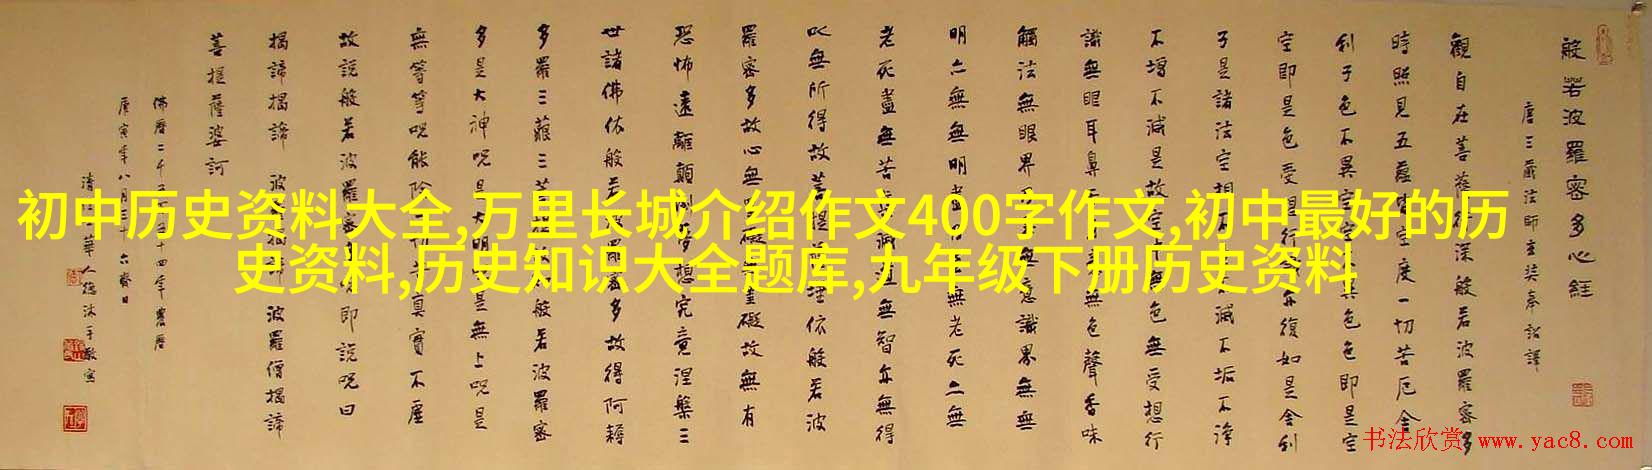 初中历史资料大全,万里长城介绍作文400字作文,初中最好的历
史资料,历史知识大全题库,九年级下册历史资料
般若波羅密多心経
唐三藏法師玄奘奉詔譯
觀自在菩薩行深般若波羅密多
時照見五蘊空度一切苦厄舍
利子色不異空不異色色即是空
空即是色受想行亦復如是舍利
子是諸法空相不滅不垢不淨
不增不減是故空中無色無受想行
識無眼耳鼻無色聲香味
觸法無眼界無意識界無無
明亦無無明盡無老死亦無
老死盡無苦滅道無智亦無得
以無所得故菩提埵依般若波
羅密多故心無罣礙無罣礙故無有
恐怖遠離顛倒夢想究竟涅槃三
世諸佛依般若羅密多故得阿耨
多羅三藐三菩提般若波羅密
多是大神咒是大明是無上咒是
無等等咒能除一切真實不虛
故說般若波羅密多即說咒曰
揭諦揭諦 波揭諦 波羅僧揭諦
菩提薩婆訶
佛曆二千五百五十四年農曆
庚寅年八月三十六齋日
清華人德沐手敬寫
书法欣赏 www.yac8.com